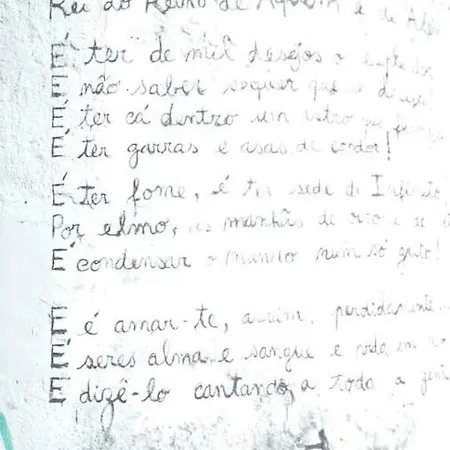 Rei do Reino de Aquém e de Alé
É ter de mil desejos o esplendor
E não saber sequer que se deseja
É ter cá dentro um astro que
É ter garras e asas de condor!
É ter fome, é ter sede de Infinito
Por elmo, as manhãs de oiro e
É condensar o mundo num só grito!
E é amar-te, assim, perdidamente...
É seres alma e sangue e vida em
E dizê-lo cantando a toda a gent